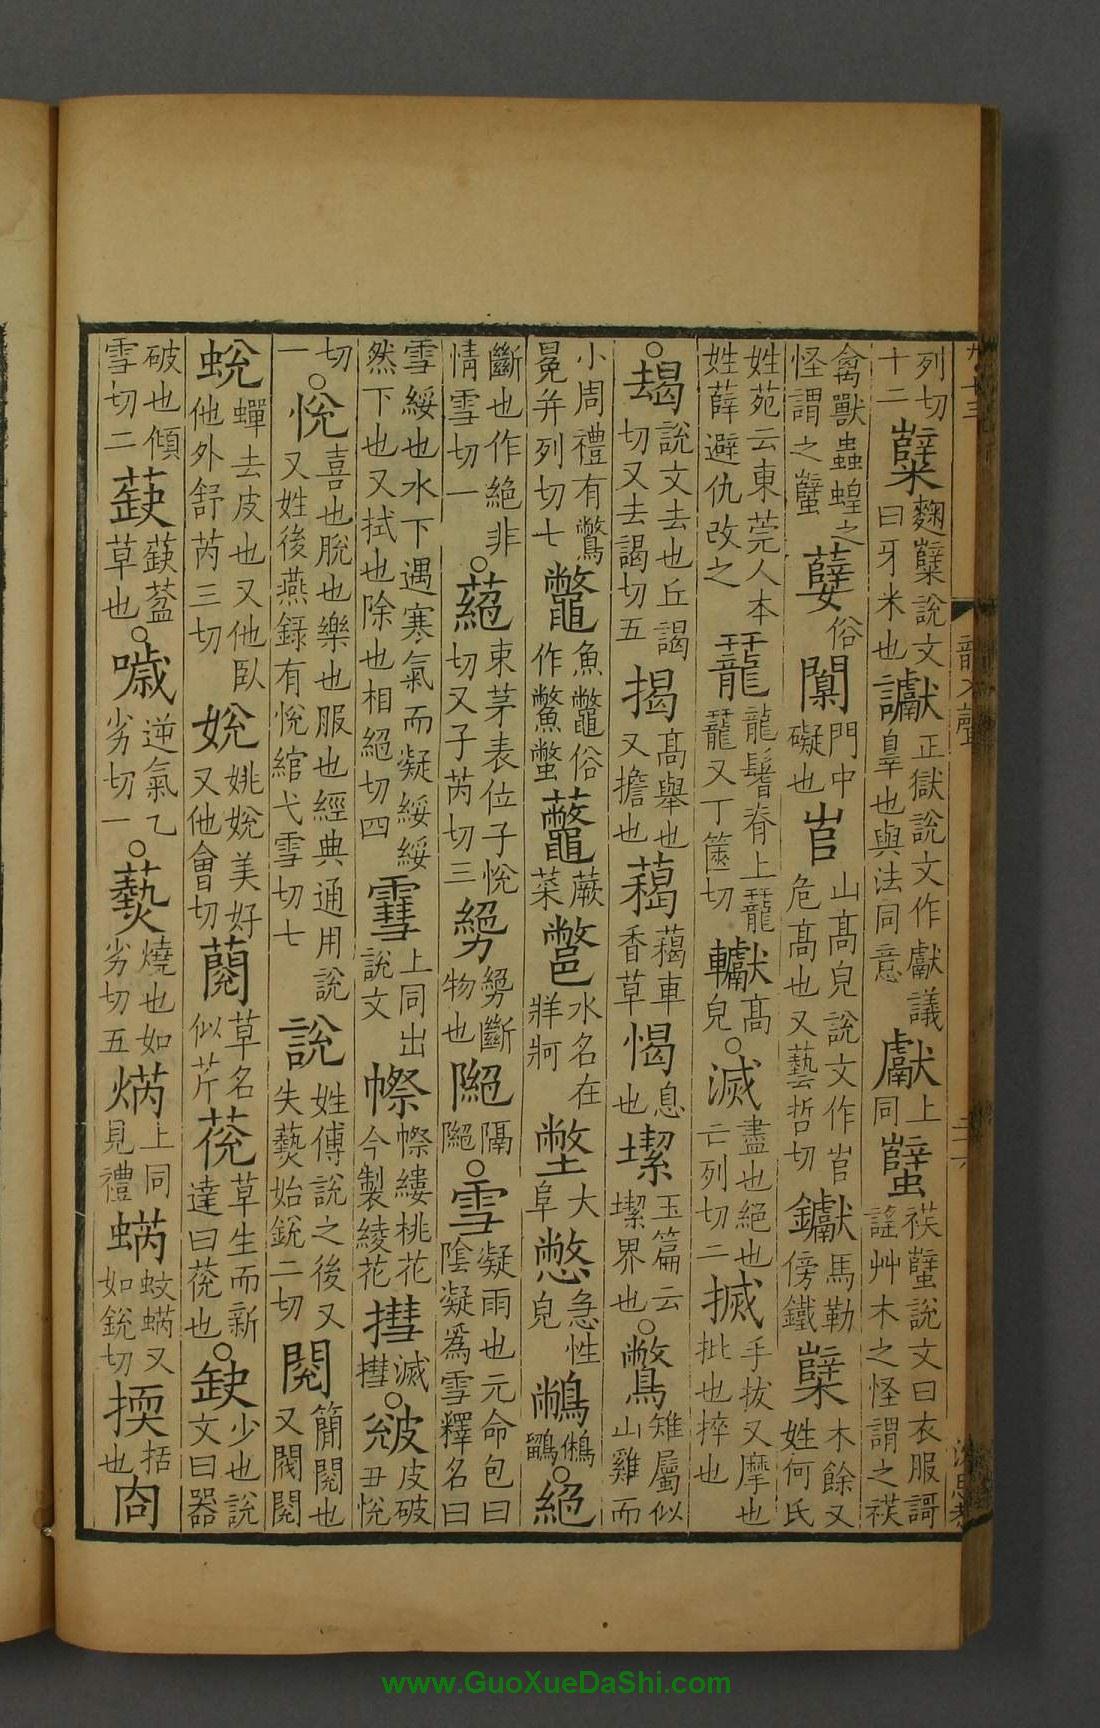 列切十二糱麴糱說文曰牙米也讞正獄說文作𤅊議辠也與法同意𤅊上同蠥䄏蠥說文曰衣服謌謠艸木之怪謂之䄏
禽獸蟲蝗之怪謂之蠥孽俗闑門中礙也㟁山高皃說文作㟁危高也又藝哲切钀馬勒傍鐵櫱木餘又姓何氏
姓苑云東莞人本姓薛避仇改之䶬龍鬐脊上䶬䶬又丁篋切巘高皃○滅盡也絕也亡列切二搣手拔又摩也批也捽也
○朅說文去也丘謁切又去謁切五揭高舉也又擔也藒藒車香草愒息也㓗玉篇云㓗界也○鷩雉屬似山雞而
小周禮有鷩冕并列切七鼈魚鼈俗作鱉蟞虌蕨菜鄨水名在牂牁𡐞大阜憋急性皃䳤䳤○絕
斷也作絶非情雪切一○蕝束茅表位子悅切又子芮切三㔢㔢斷物也䧵隔䧵○雪凝雨也元命包曰陰凝爲雪釋名曰
雪綏也水下遇寒氣而凝綏綏然下也又拭也除也相絕切四䨮上同出說文幯幯縷桃花今製綾花㨹滅㨹○皴皮破丑悅
切一○悅喜也脫也樂也服也經典通用說又姓後燕錄有悅綰弋雪切七說姓傅說之後又失爇始銳二切閱簡閱也又閥閱
蛻蟬去皮也又他臥他外舒芮三切娧姚娧美好又他會切䕎草名似芹莌草生而新達曰莌也○缺少也說文曰器
破也傾雪切二蒛蒛葐草也○噦逆氣乙劣切一○爇燒也如劣切五焫上同見禮蜹蚊蜹又如銳切㨎括也㕯
www.GuoXueDaShi.com